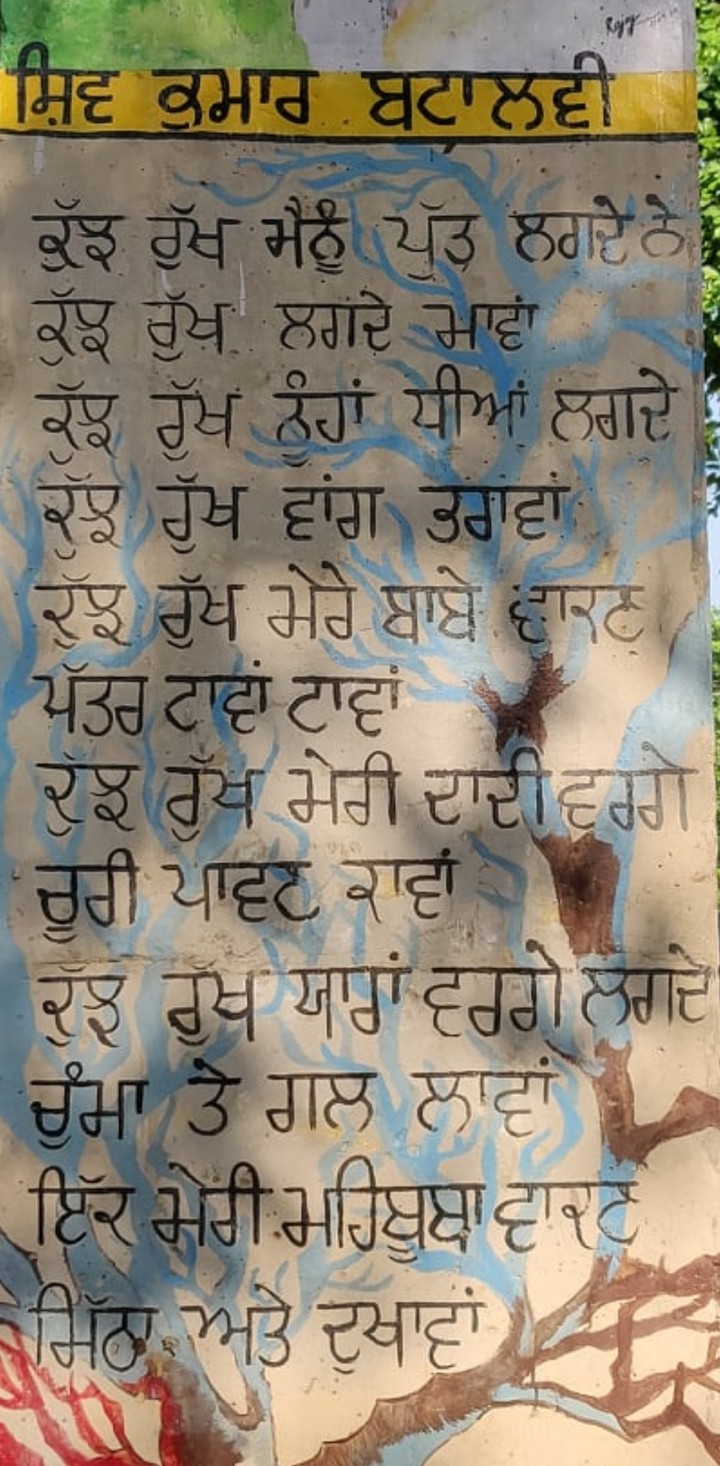 ਸ਼ਿਵ ਕੁਮਾਰ ਬਟਾਲਵੀ
ਕੁੱਝ ਰੁੱਖ ਮੈਨੂੰ ਪੁੱਤ ਲਗਦੇ ਨੇ
ਕੁੱਝ ਰੁੱਖ ਲਗਦੇ ਮਾਵਾਂ
ਕੁੱਝ ਰੁੱਖ ਨੂੰਹਾਂ ਧੀਆਂ ਲਗਦੇ
ਕੁੱਝ ਰੁੱਖ ਵਾਂਗ ਭਰਾਵਾਂ
ਕੁੱਝ ਰੁੱਖ ਮੇਰੇ ਬਾਬੇ ਵਾਕਣ
ਪੱਤਰ ਟਾਵਾਂ ਟਾਵਾਂ
ਕੁੱਝ ਰੁੱਖ ਮੇਰੀ ਦਾਦੀ ਵਰਗੇ
ਚੂਰੀ ਪਾਵਣ ਕਾਵਾਂ
ਕੁੱਝ ਰੁੱਖ ਯਾਰਾਂ ਵਰਗੇ ਲਗਦੇ
ਚੁੰਮਾ ਤੇ ਗਲ ਲਾਵਾਂ
ਇੱਕ ਮੇਰੀ ਮਹਿਬੂਬਾ ਵਾਕਣ
ਮਿੱਠਾ ਅਤੇ ਦੁਖਾਵਾਂ